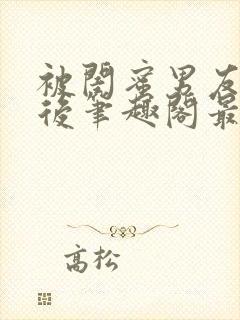 被闺蜜男友
后笔趣阁最
高松